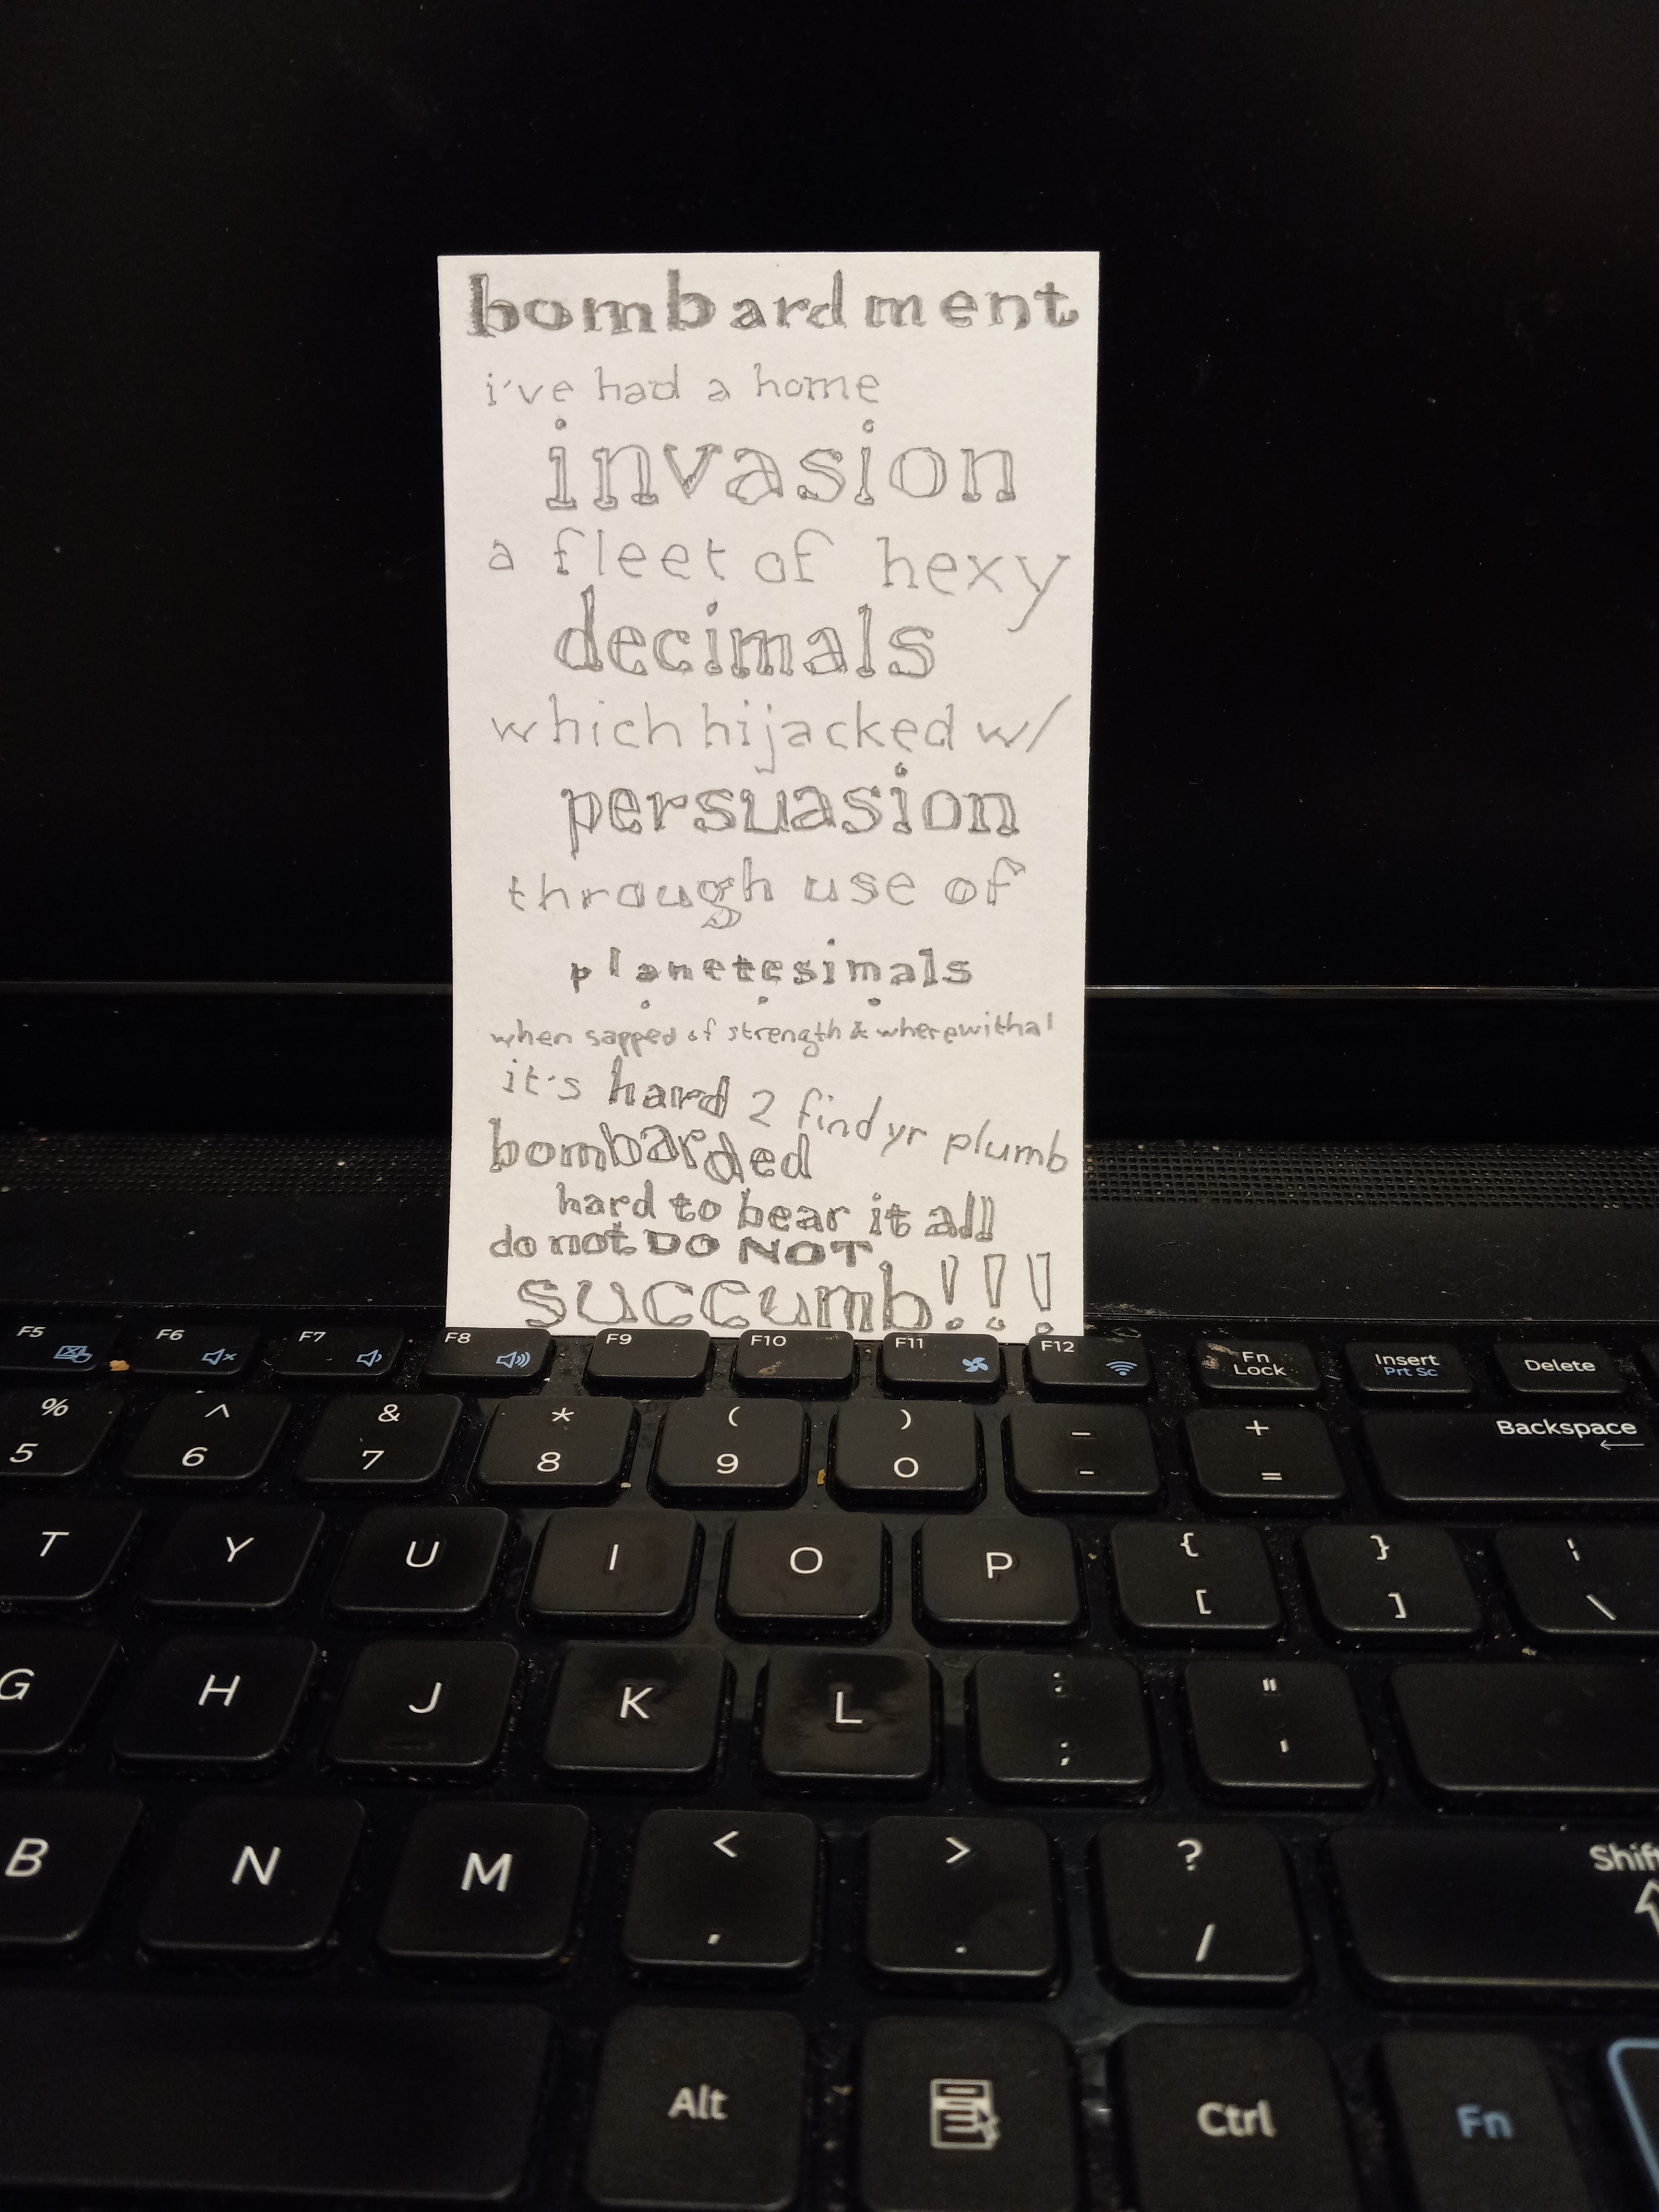 bombardment
i've had a home
invasion
a fleet of hexy
decimals
which hijacked w/
persuasion
through use of
planetesimals
when sapped of strength & wherewithal
it's hard 2 find yr plumb
bombarded
hard to bear it all
do not DO NOT
succumb!!!
F5 F6 F7 F8 F9 F10 F11 F12 Fn Lock Insert Prt Sc Delete
% 5 ^ 6 & 7 * 8 ( 9 ) 0 _ - + = Backspace
T Y U I O P { [ } ] | \
G H J K L : ; " '
B N M < , > . ? / Shift
Alt Ctrl Fn